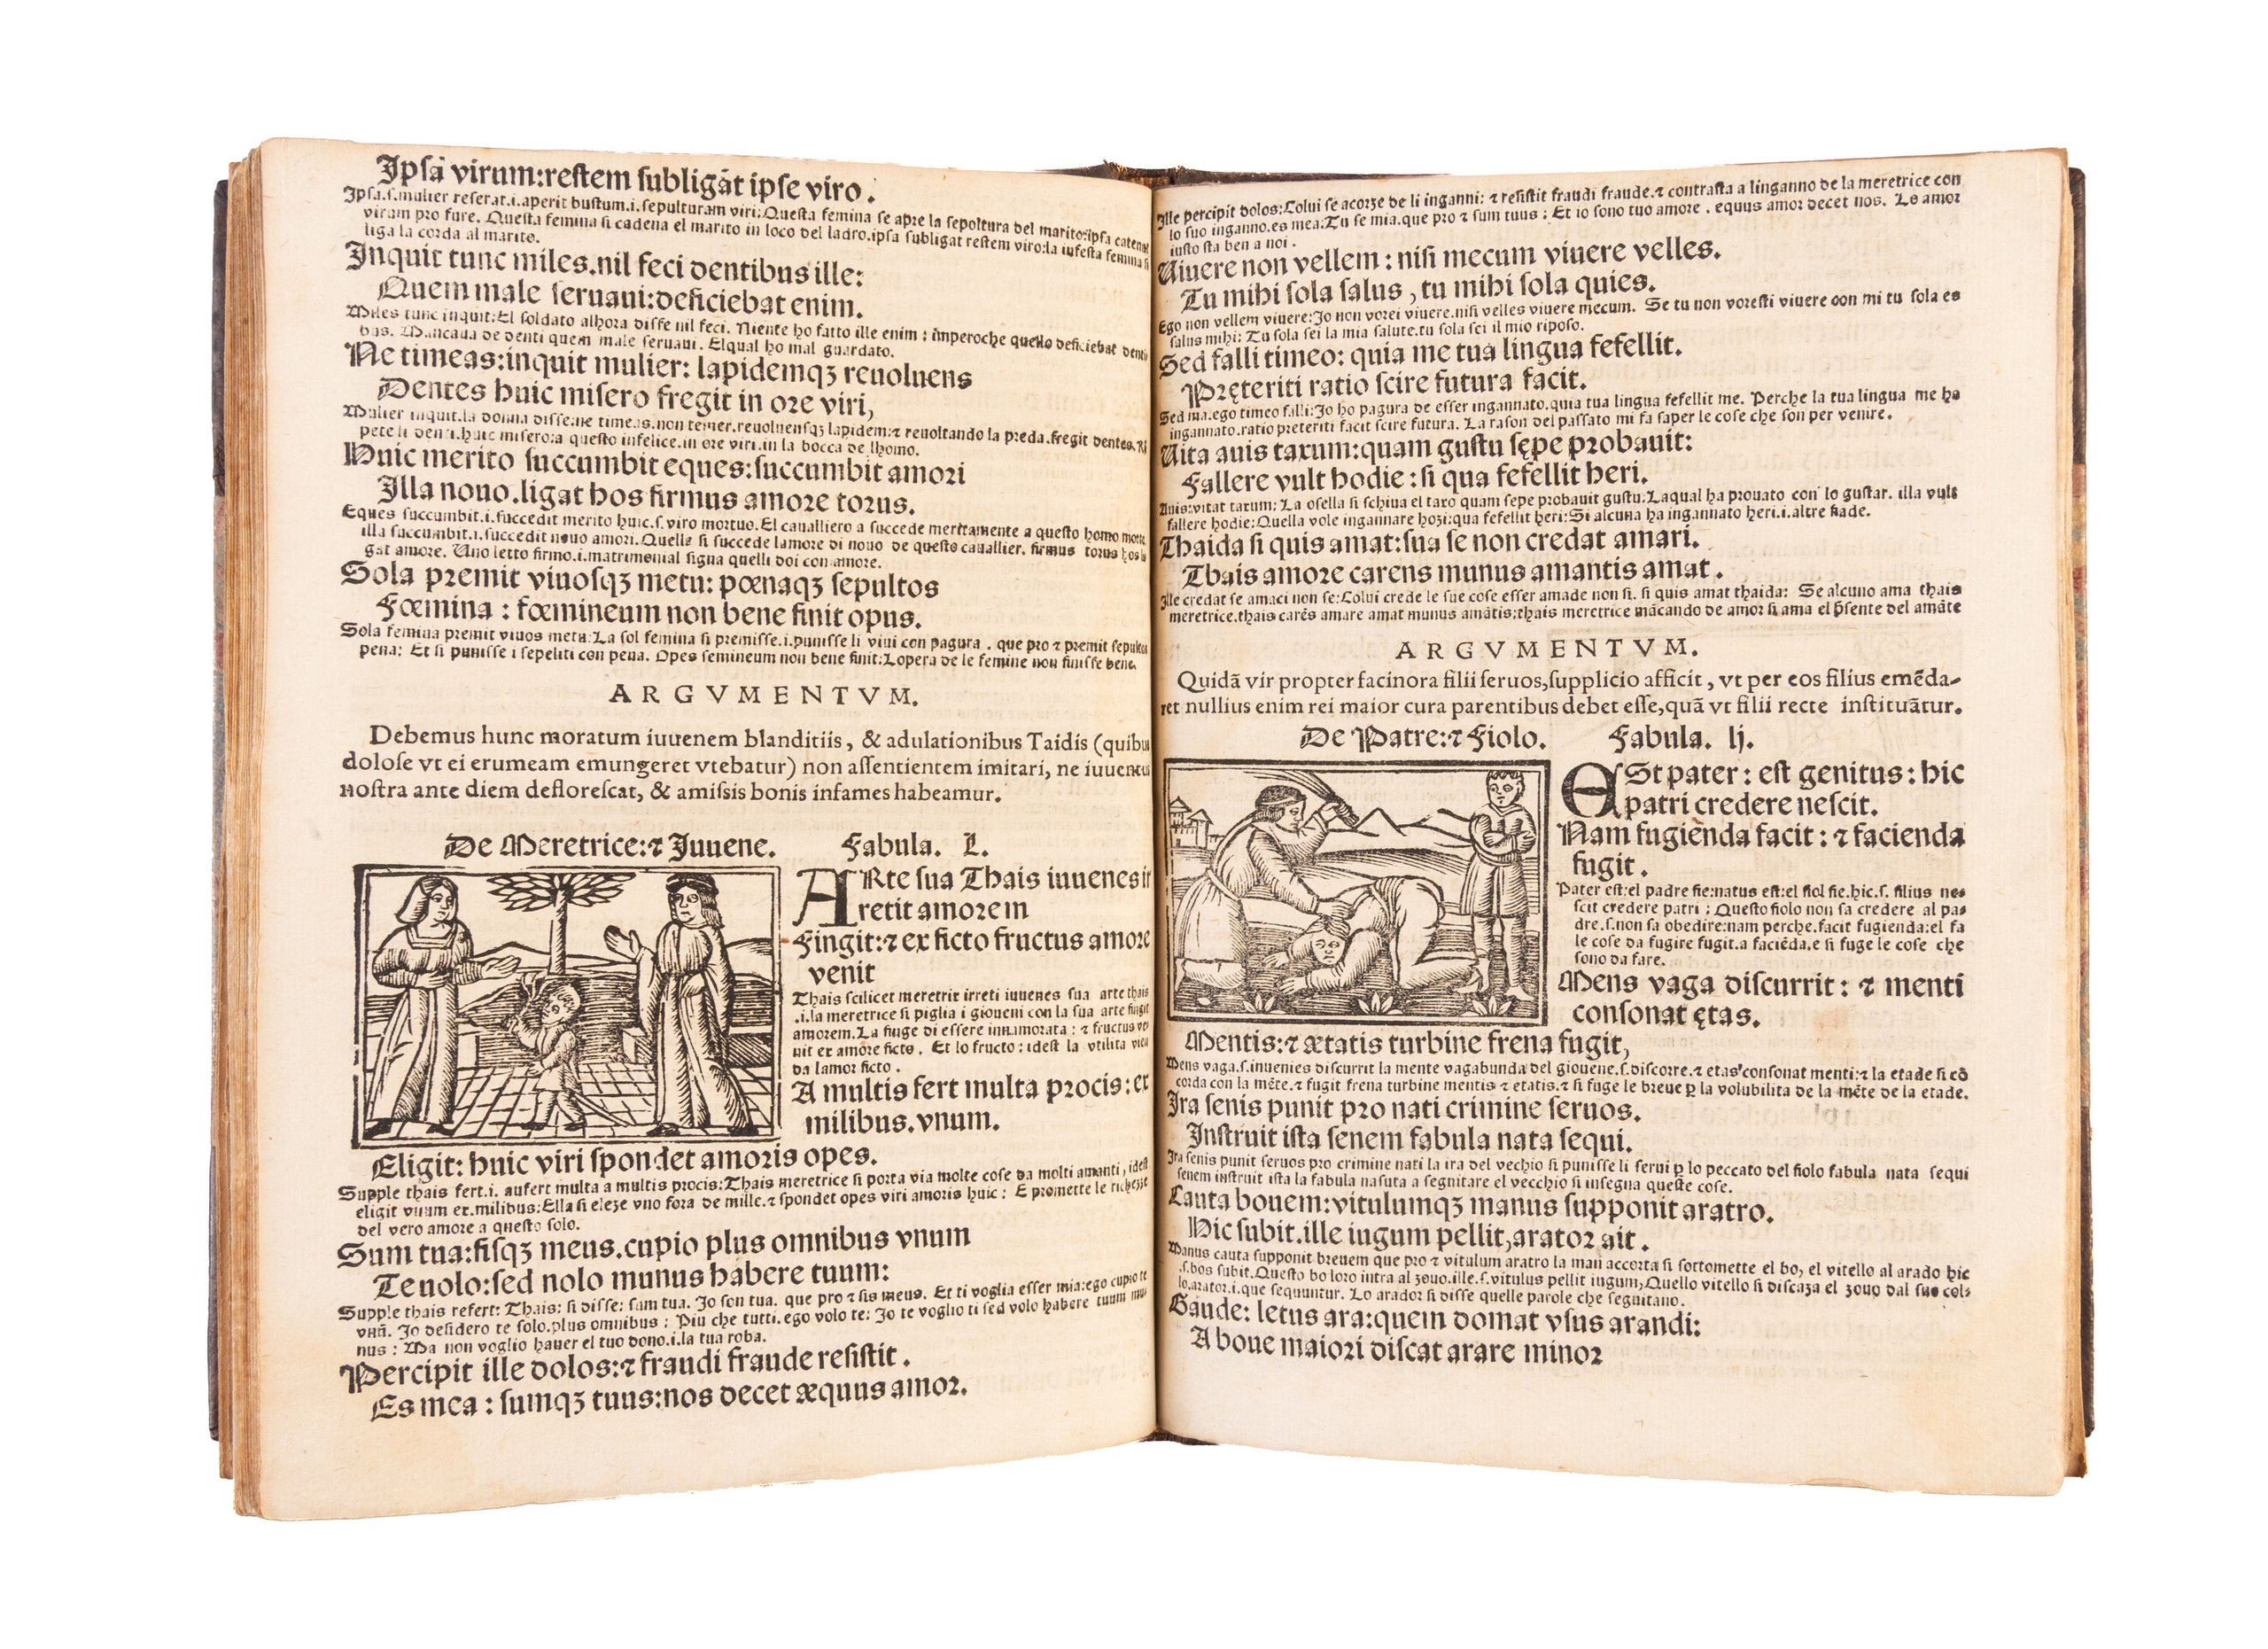 Ipsā virum:restem subligāt ipse viro.
Ipsa.s.mulier reserat.i.aperit bustum.i.sepulturam viri:Questa femina se apre la sepoltura del marito:ipsa catenat
virum pro fure. Questa femina si cadena el marito in loco del ladro.ipsa subligat restem viro:la iufesta femina si
liga la corda al marito.
Inquit tunc miles.nil feci dentibus ille:
Quem male seruaui:deficiebat enim.
Miles tunc inquit:El soldato alhora disse nil feci. Niente ho fatto ille enim : imperoche quello deficiebat denti
bus. Mancaua de denti quem male seruaui. Elqual ho mal guardato.
Ne timeas:inquit mulier: lapidemqꝫ reuoluens
Dentes huic misero fregit in ore viri,
Mulier inquit.la donna disse:ne timeas.non temer.reuoluensqꝫ lapidem:⁊ reuoltando la preda.fregit dentes.
pete li denti.huic misero:a questo infelice.in ore viri.in la bocca de lhomo.
Huic merito succumbit eques:succumbit amori
Illa nouo.ligat hos firmus amore torus.
Eques succumbit.i.succedit merito huic.s.viro mortuo.El caualliero a succede merttamente a questo homo
illa succumbit.i.succedit nouo amori.Quelle si succede lamore di nouo de questo cauallier. firmus torus hos
gat amore. Uno letto firmo.i.matrimonial figna quelli doi con amore.
Sola premit viuosqꝫ metu: pœnaqꝫ sepultos
Fœmina : fœmineum non bene finit opus.
Sola femina premit viuos metu:La sol femina si premisse.i.punisse li viui con pagura . que pro ⁊ premit
pena: Et si punisse i sepeliti con pena. Opes femineum non bene finit:Lopera de le femine non finisse bene.
ARGVMENTVM.
Debemus hunc moratum iuuenem blanditiis, & adulationibus Taidis (quibus
dolose vt ei erumeam emungeret vtebatur) non assentientem imitari, ne iuuentus
nostra ante diem deflorescat, & amissis bonis infames habeamur.
De Meretrice:⁊ Iuuene. Fabula. L.
ARte sua Thais iuuenes ir
retit amorem
Fingit:⁊ ex ficto fructus amore
venit
Thais scilicet meretrix irreti iuuenes sua arte thais
.i.la meretrice si piglia i gioueni con la sua arte fingit
amorem.La finge di essere innamorata : ⁊ fructus ve
nit ex amore ficto. Et lo fructo : idest la vtilita vien
da lamor ficto .
A multis fert multa procis:ex
milibus.vnum.
Eligit: huic viri spondet amoris opes.
Supple thais fert.i. aufert multa a multis procis:Thais meretrice si porta via molte cose da molti amanti , idest
eligit vnum ex.milibus:Ella si eleze vno fora de mille.⁊ spondet opes viri amoris huic : E promette le richezze
del vero amore a questo solo.
Sum tua:fisqꝫ meus.cupio plus omnibus vnum
Te volo:sed nolo munus habere tuum:
Supple thais refert: Thais: si disse: sum tua. Io son tua. que pro ⁊ sis meus. Et ti voglia esser mia:ego cupio te
vnū. Io desidero te solo.plus omnibus : Piu che tutti.ego volo te: Io te voglio ti sed volo habere tuum mu
nus : Ma non voglio hauer el tuo dono.i.la tua roba.
Percipit ille dolos:⁊ fraudi fraude resistit.
Es mea : sumqꝫ tuus:nos decet æquus amor.
Ille percipit dolos:Colui se acorze de li inganni: ⁊ resistit fraudi fraude.⁊ contrasta a linganno de la meretrice con
lo suo inganno.es mea:Tu se mia.que pro ⁊ sum tuus : Et io sono tuo amore . equus amor decet nos. Lo amor
iusto sta ben a noi .
Uiuere non vellem : nisi mecum viuere velles.
Tu mihi sola salus , tu mihi sola quies.
Ego non vellem viuere:Io non vorei viuere.nisi velles viuere mecum. Se tu non voresti viuere con mi tu sola es
salus mihi: Tu sola sei la mia salute.tu sola sei il mio riposo.
Sed falli timeo: quia me tua lingua fefellit.
Pręteriti ratio scire futura facit.
Sed ma.ego timeo falli:Io ho pagura de esser ingannato.quia tua lingua fefellit me. Perche la tua lingua me ha
ingannato.ratio preteriti facit scire futura. La rason del passato mi fa saper le cose che son per venire.
Uita auis taxum:quam gustu sępe probauit:
Fallere vult hodie : si qua fefellit heri.
Auis:vitat tatum: La osella si schiua el taro quam sepe probauit gustu:Laqual ha prouato con lo gustar. illa vult
fallere hodie:Quella vole ingannare hozi:qua fefellit heri:Si alcuna ha ingannato heri.i.altre fiade.
Thaida si quis amat:sua se non credat amari.
Thais amore carens munus amantis amat.
Ille credat se amaci non se:Colui crede le sue cose esser amade non si. si quis amat thaida: Se alcuno ama thais
meretrice.thais carēs amare amat munus amātis:thais meretrice mācando de amor si ama el p̄sente del amāte
ARGVMENTVM.
Quidā vir propter facinora filii seruos,supplicio afficit , vt per eos filius emēda-
ret nullius enim rei maior cura parentibus debet esse,quā vt filii recte instituātur.
De Patre:⁊ Fiolo. Fabula. lj.
ESt pater : est genitus : hic
patri credere nescit.
Nam fugienda facit : ⁊ facienda
fugit.
Pater est:el padre fie:natus est:el fiol fie.hic.s. filius ne-
scit credere patri : Questo fiolo non sa credere al pa-
dre.s.non sa obedire:nam perche.facit fugienda:el fa
le cose da fugire fugit.a faciēda.e si fuge le cose che
sono da fare.
Mens vaga discurrit : ⁊ menti
consonat ętas.
Mentis:⁊ ætatis turbine frena fugit,
Mens vaga.s.inuenies discurrit la mente vagabunda del giouene.s.discorre.⁊ etas consonat menti:⁊ la etade si cō
corda con la mēte.⁊ fugit frena turbine mentis ⁊ etatis.⁊ si fuge le breue ꝑ la volubilita de la mēte de la etade.
Ira senis punit pro nati crimine seruos.
Instruit ista senem fabula nata sequi.
Ira senis punit seruos pro crimine nati la ira del vechio si punisse li serui ꝑ lo peccato del fiolo fabula nata sequi
senem instruit ista la fabula nasuta a seguitare el vecchio si insegna queste cose.
Cauta bouem:vitulumqꝫ manus supponit aratro.
Hic subit.ille iugum pellit,arator ait.
Manus cauta supponit breuem que pro ⁊ vitulum aratro la man accorta si sottomette el bo, el vitello al arado hic
.s.bos subit.Questo bo loro intra al zouo.ille.s.vitulus pellit iugum,Quello vitello si discaza el zouo dal suo col-
lo.arator.i.que sequuntur. Lo arador si disse quelle parole che seguitano.
Gaude: letus ara:quem domat vsus arandi:
A boue maiori discat arare minor